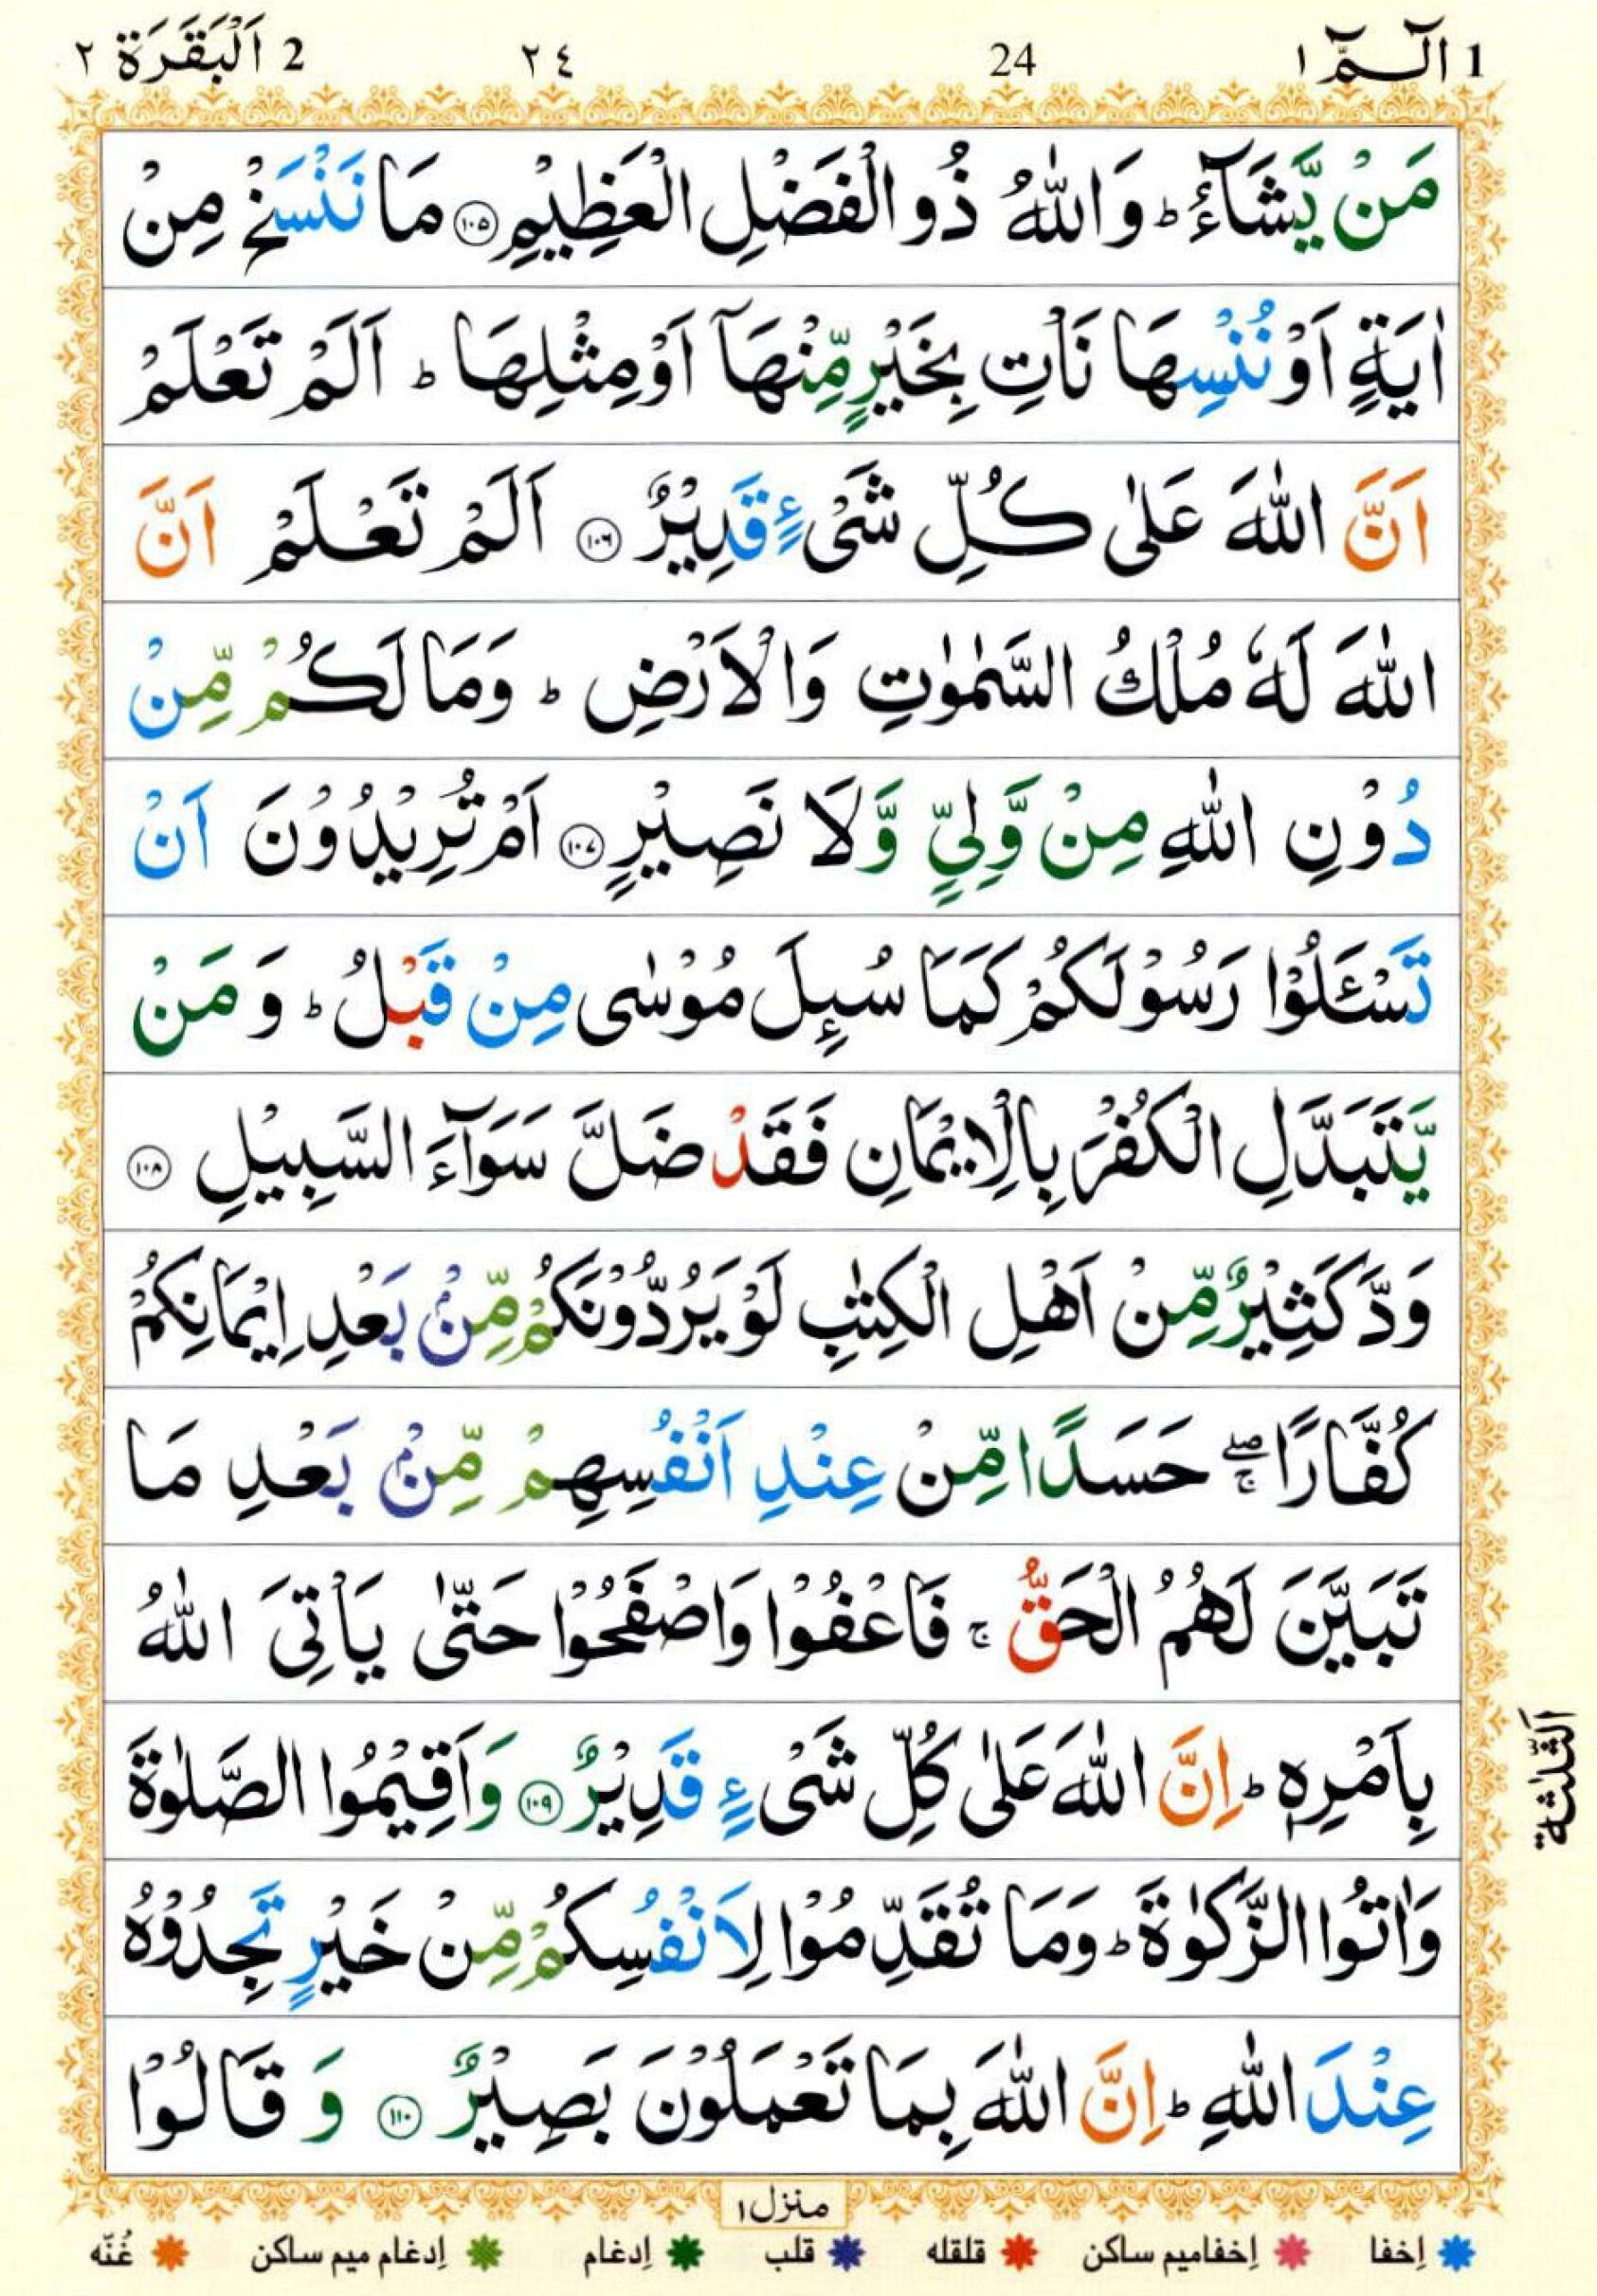 1 الٓـمّٓ ١ 24 ٢٤ 2 اَلْبَقَرَة ٢
مَنْ يَّشَآءُ ؕ وَاللّٰهُ ذُو الْفَضْلِ الْعَظِيْمِ ۝١٠٥ مَا نَنْسَخْ مِنْ
اٰيَةٍ اَوْ نُنْسِهَا نَاْتِ بِخَيْرٍ مِّنْهَاۤ اَوْ مِثْلِهَا ؕ اَلَمْ تَعْلَمْ
اَنَّ اللّٰهَ عَلٰى كُلِّ شَىْءٍ قَدِيْرٌ ۝١٠٦ اَلَمْ تَعْلَمْ اَنَّ
اللّٰهَ لَهٗ مُلْكُ السَّمٰوٰتِ وَالْاَرْضِ ؕ وَمَا لَكُمْ مِّنْ
دُوْنِ اللّٰهِ مِنْ وَّلِىٍّ وَّلَا نَصِيْرٍ ۝١٠٧ اَمْ تُرِيْدُوْنَ اَنْ
تَسْئَلُوْا رَسُوْلَكُمْ كَمَا سُىِٕلَ مُوْسٰى مِنْ قَبْلُ ؕ وَ مَنْ
يَّتَبَدَّلِ الْكُفْرَ بِالْاِيْمَانِ فَقَدْ ضَلَّ سَوَآءَ السَّبِيْلِ ۝١٠٨
وَدَّ كَثِيْرٌ مِّنْ اَهْلِ الْكِتٰبِ لَوْ يَرُدُّوْنَكُمْ مِّنْۢ بَعْدِ اِيْمَانِكُمْ
كُفَّارًا ۖۚ حَسَدًا مِّنْ عِنْدِ اَنْفُسِهِمْ مِّنْۢ بَعْدِ مَا
تَبَيَّنَ لَهُمُ الْحَقُّ ۚ فَاعْفُوْا وَاصْفَحُوْا حَتّٰى يَاْتِىَ اللّٰهُ
بِاَمْرِهٖ ؕ اِنَّ اللّٰهَ عَلٰى كُلِّ شَىْءٍ قَدِيْرٌ ۝١٠٩ وَاَقِيْمُوا الصَّلٰوةَ
وَاٰتُوا الزَّكٰوةَ ؕ وَمَا تُقَدِّمُوْا لِاَنْفُسِكُمْ مِّنْ خَيْرٍ تَجِدُوْهُ
عِنْدَ اللّٰهِ ؕ اِنَّ اللّٰهَ بِمَا تَعْمَلُوْنَ بَصِيْرٌ ۝١١٠ وَ قَالُوْا
الثلٰثة
منزل ١
اِخفا اِخفامیم ساکن قلقله قلب اِدغام اِدغام میم ساکن غُنّه